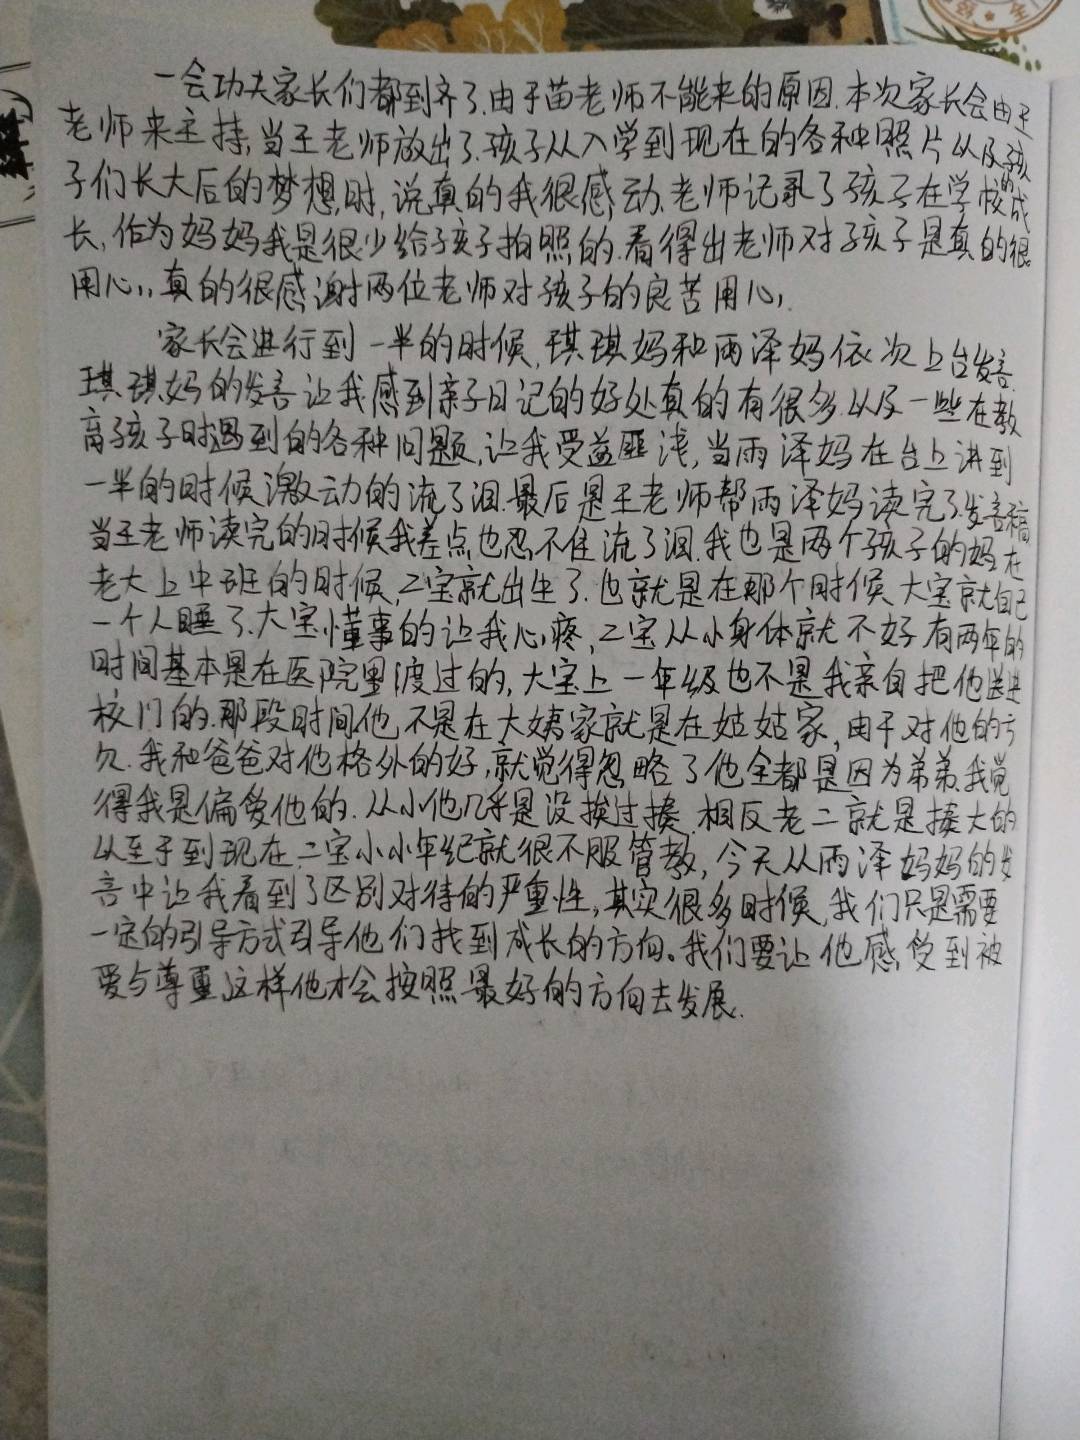 一会功夫家长们都到齐了.由于苗老师不能来的原因.本次家长会由王
老师来主持,当王老师放出了.孩子从入学到现在的各种照片以及孩
子们长大后的梦想时,说真的我很感动.老师记录了孩子在学校的成
长,作为妈妈我是很少给孩子拍照的.看得出老师对孩子是真的很
用心,真的很感谢两位老师对孩子的良苦用心,
家长会进行到一半的时候,琪琪妈和雨泽妈依次上台发言.
琪琪妈的发言让我感到亲子日记的好处真的有很多.以及一些在教
育孩子时遇到的各种问题,让我受益匪浅,当雨泽妈在台上讲到
一半的时候激动的流了泪.最后是王老师帮雨泽妈读完了发言稿
当王老师读完的时候我差点也忍不住流了泪.我也是两个孩子的妈在
老大上中班的时候,二宝就出生了.也就是在那个时候大宝就自己
一个人睡了.大宝懂事的让我心疼,二宝从小身体就不好有两年的
时间基本是在医院里渡过的,大宝上一年级也不是我亲自把他送进
校门的.那段时间他不是在大姨家就是在姑姑家,由于对他的亏
欠.我和爸爸对他格外的好,就觉得忽略了他全都是因为弟弟.我觉
得我是偏爱他的.从小他几乎是没挨过揍.相反老二就是揍大的
以至于到现在.二宝小小年纪就很不服管教,今天从雨泽妈妈的发
言中让我看到了区别对待的严重性,其实很多时候,我们只是需要
一定的引导方式引导他们找到成长的方向。我们要让他感受到被
爱与尊重,这样他才会按照最好的方向去发展.